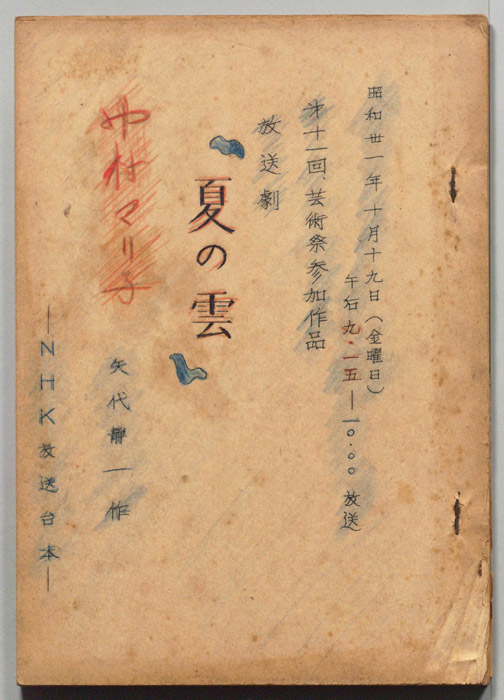 昭和卅一年十月十九日(金曜日)
午后九・一五―一〇・〇〇放送
第十一回、芸術祭参加作品
放送劇
夏の雲
中村マリ子
矢代静一作
―NHK放送台本―